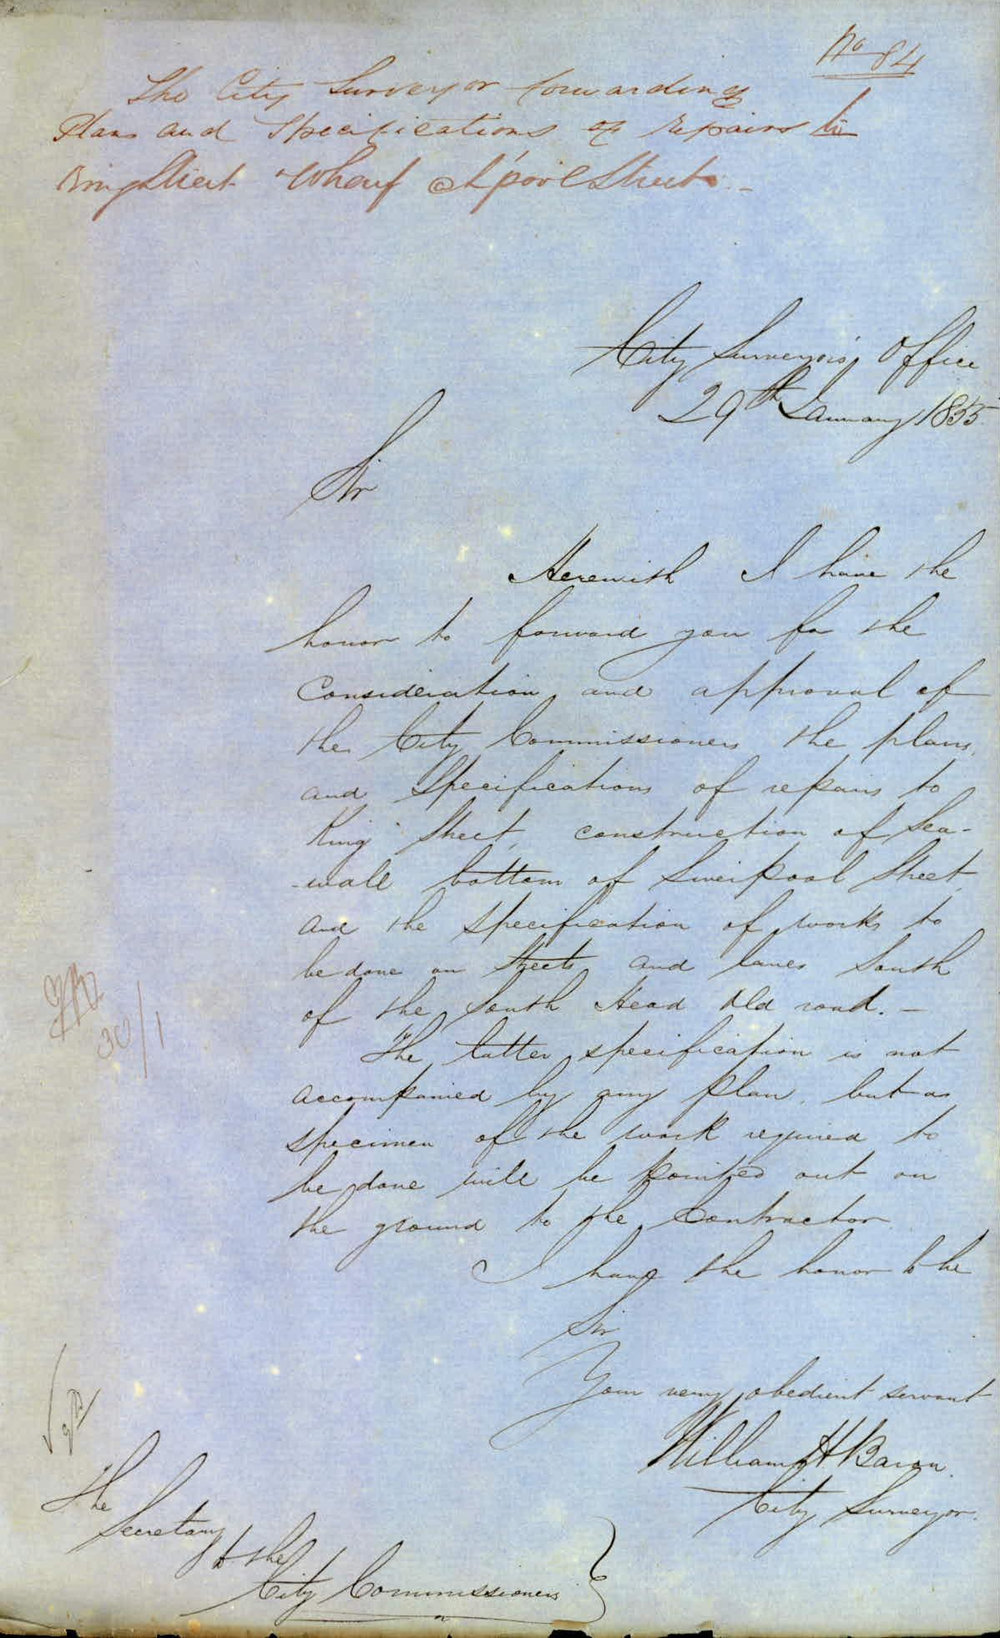 No 84
The City Surveyor forwarding
Plans and Specifications of repairs to
King Street Wharf & L'pool Street. -
City Surveyors' Office
29th January 1855
Sir
Herewith I have the
honor to forward you for the
Consideration and approval of
the City Commissioners the plans,
and Specifications of repairs to
King Street, construction of Sea-
-wall bottom of Liverpool Street,
and the specification of works to
be done on Streets and lanes South
of the South Head Old road. -
The latter specification is not
accompanied by any plan, but a
specimen of the work required to
be done will be pointed out on
the ground to the Contractor
I have the honor to be
Sir
Your very obedient servant
William H Baron.
City Surveyor.
30/1
The
Secretary
to the
City Commissioners